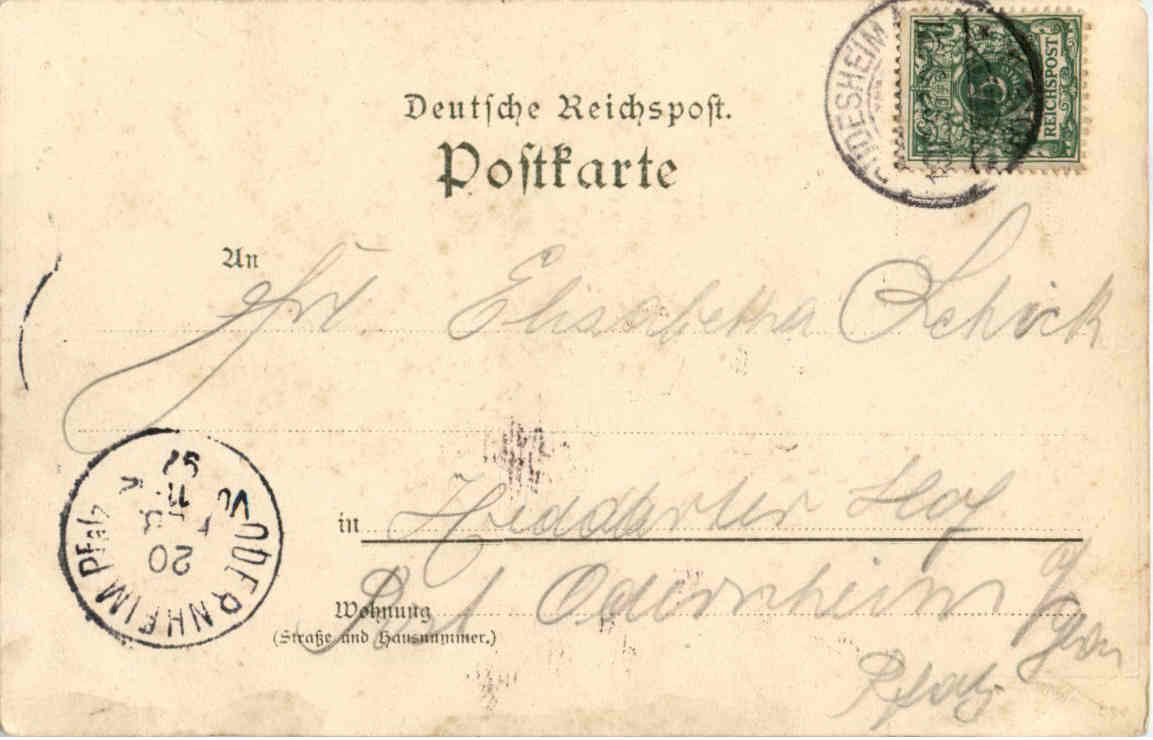 Deutsche Reichspost.
Postkarte
REICHSPOST
5
An
Frl. Elisabetha Schick
in Heddarter Hof
Wohnung
Post Odernheim a/Glan
(Straße und Hausnummer.)
Pfalz
ODERNHEIM Pfalz
20
11